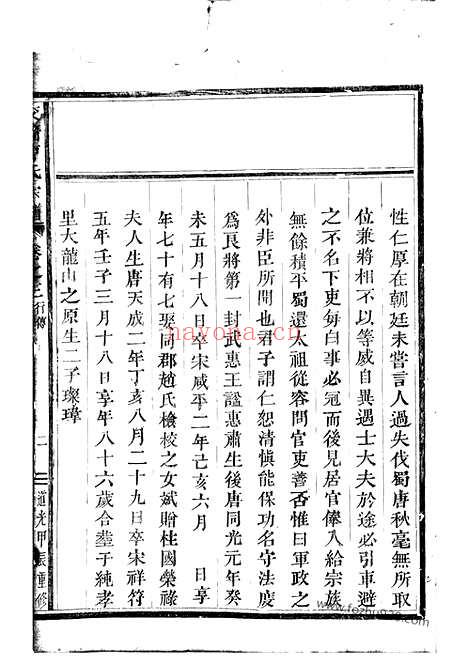 性仁厚在朝廷未嘗言人過失伐蜀唐秋毫無所取
位兼將相不以等威自異遇士大夫於途必引車避
之不名下吏每白事必冠而後見居官俸入給宗族
無餘積平蜀還太祖從容問官吏善否惟曰軍政之
外非臣所聞也君子謂仁恕清慎能保功名守法度
為良將第一封武惠王諡惠肅生後唐同光元年癸
未五月十八日卒宋咸平二年己亥六月　日享
年七十有七娶同郡趙氏檢校之女斌贈柱國榮祿
夫人生唐天成二年丁亥八月二十九日卒宋祥符
五年壬子三月十八日享年八十六歲合塟于純孝
里大龍山之原生二子璨瑋
二
道光甲辰重修
nayona.cn
www.fezhug.com